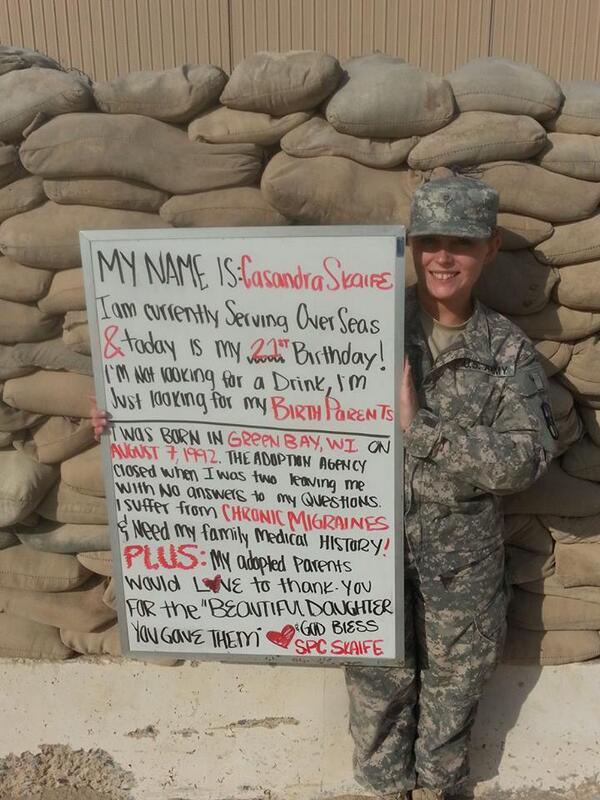 MY NAME IS: Casandra SKaiFE
I am currently Serving OverSeas
& today is my 21ST Birthday!
I'M Not looking for a Drink, I'm
Just looking for my BIRTH PARENTS
I WAS BORN IN GREEN BAY, WI ON
AUGUST 7, 1992. THE ADOPTION AGENCY
closed when I was two leaving me
with no answers to my Questions.
I suffer from CHRONIC MIGRAINES
& Need my family Medical HISTORY!
PLUS: My adopted Parents
would LOVE to thank you
FOR the "BEAUTIFUL DAUGHTER
YOU GAVE THEM" & GOD BLESS
SPC SKAIFE
U.S. ARMY